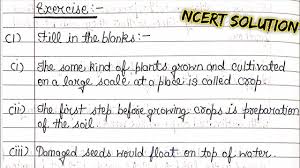 Exercise:-
NCERT SOLUTION
(1) Fill in the blanks:-
(i) The same kind of plants grown and cultivated
on a large scale at a place is called crop.
(ii) The first step before growing crops is preparation
of the soil.
(iii) Damaged seeds would float on top of water.